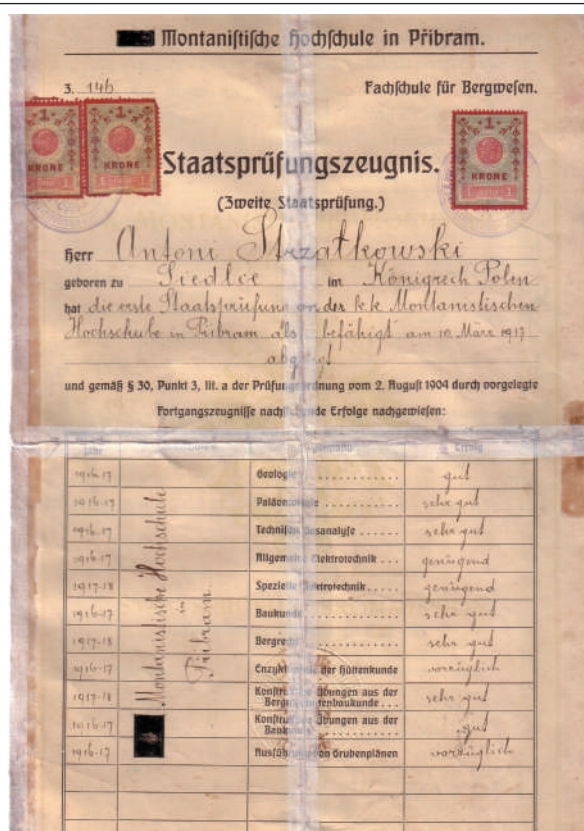 Montanistische Hochschule in Příbram.
3. 146
Fachschule für Bergwesen.
1
KRONE
1
KRONE
1
KRONE
Staatsprüfungszeugnis.
(Zweite Staatsprüfung.)
Herr Antoni Strzałkowski
geboren zu Siedlce im Königrech Polen
hat die erste Staatsprüfung an der k.k. Montanistischen
Hochschule in Přibram als befähigt am 10. März 1917
abgelegt
und gemäß § 30, Punkt 3, lit. a der Prüfungsordnung vom 2. August 1904 durch vorgelegte
Fortgangszeugnisse nachstehende Erfolge nachgewiesen:
Jahr Erfolg
1916-17 Geologie gut
1916-17 Paläontologie sehr gut
1916-17 Technische Gasanalyse sehr gut
1916-17 Allgemeine Elektrotechnik genügend
1917-18 Spezielle Elektrotechnik genügend
1916-17 Baukunde sehr gut
1917-18 Bergrecht sehr gut
1916-17 Enzyklopädie der Hüttenkunde vorzüglich
1917-18 Konstruktive Übungen aus der
Berg enbaukunde sehr gut
1916-17 Konstruktive Übungen aus der
Baukunde gut
1916-17 Ausführung von Grubenplänen vorzüglich
Montanistische Hochschule
in
Přibram